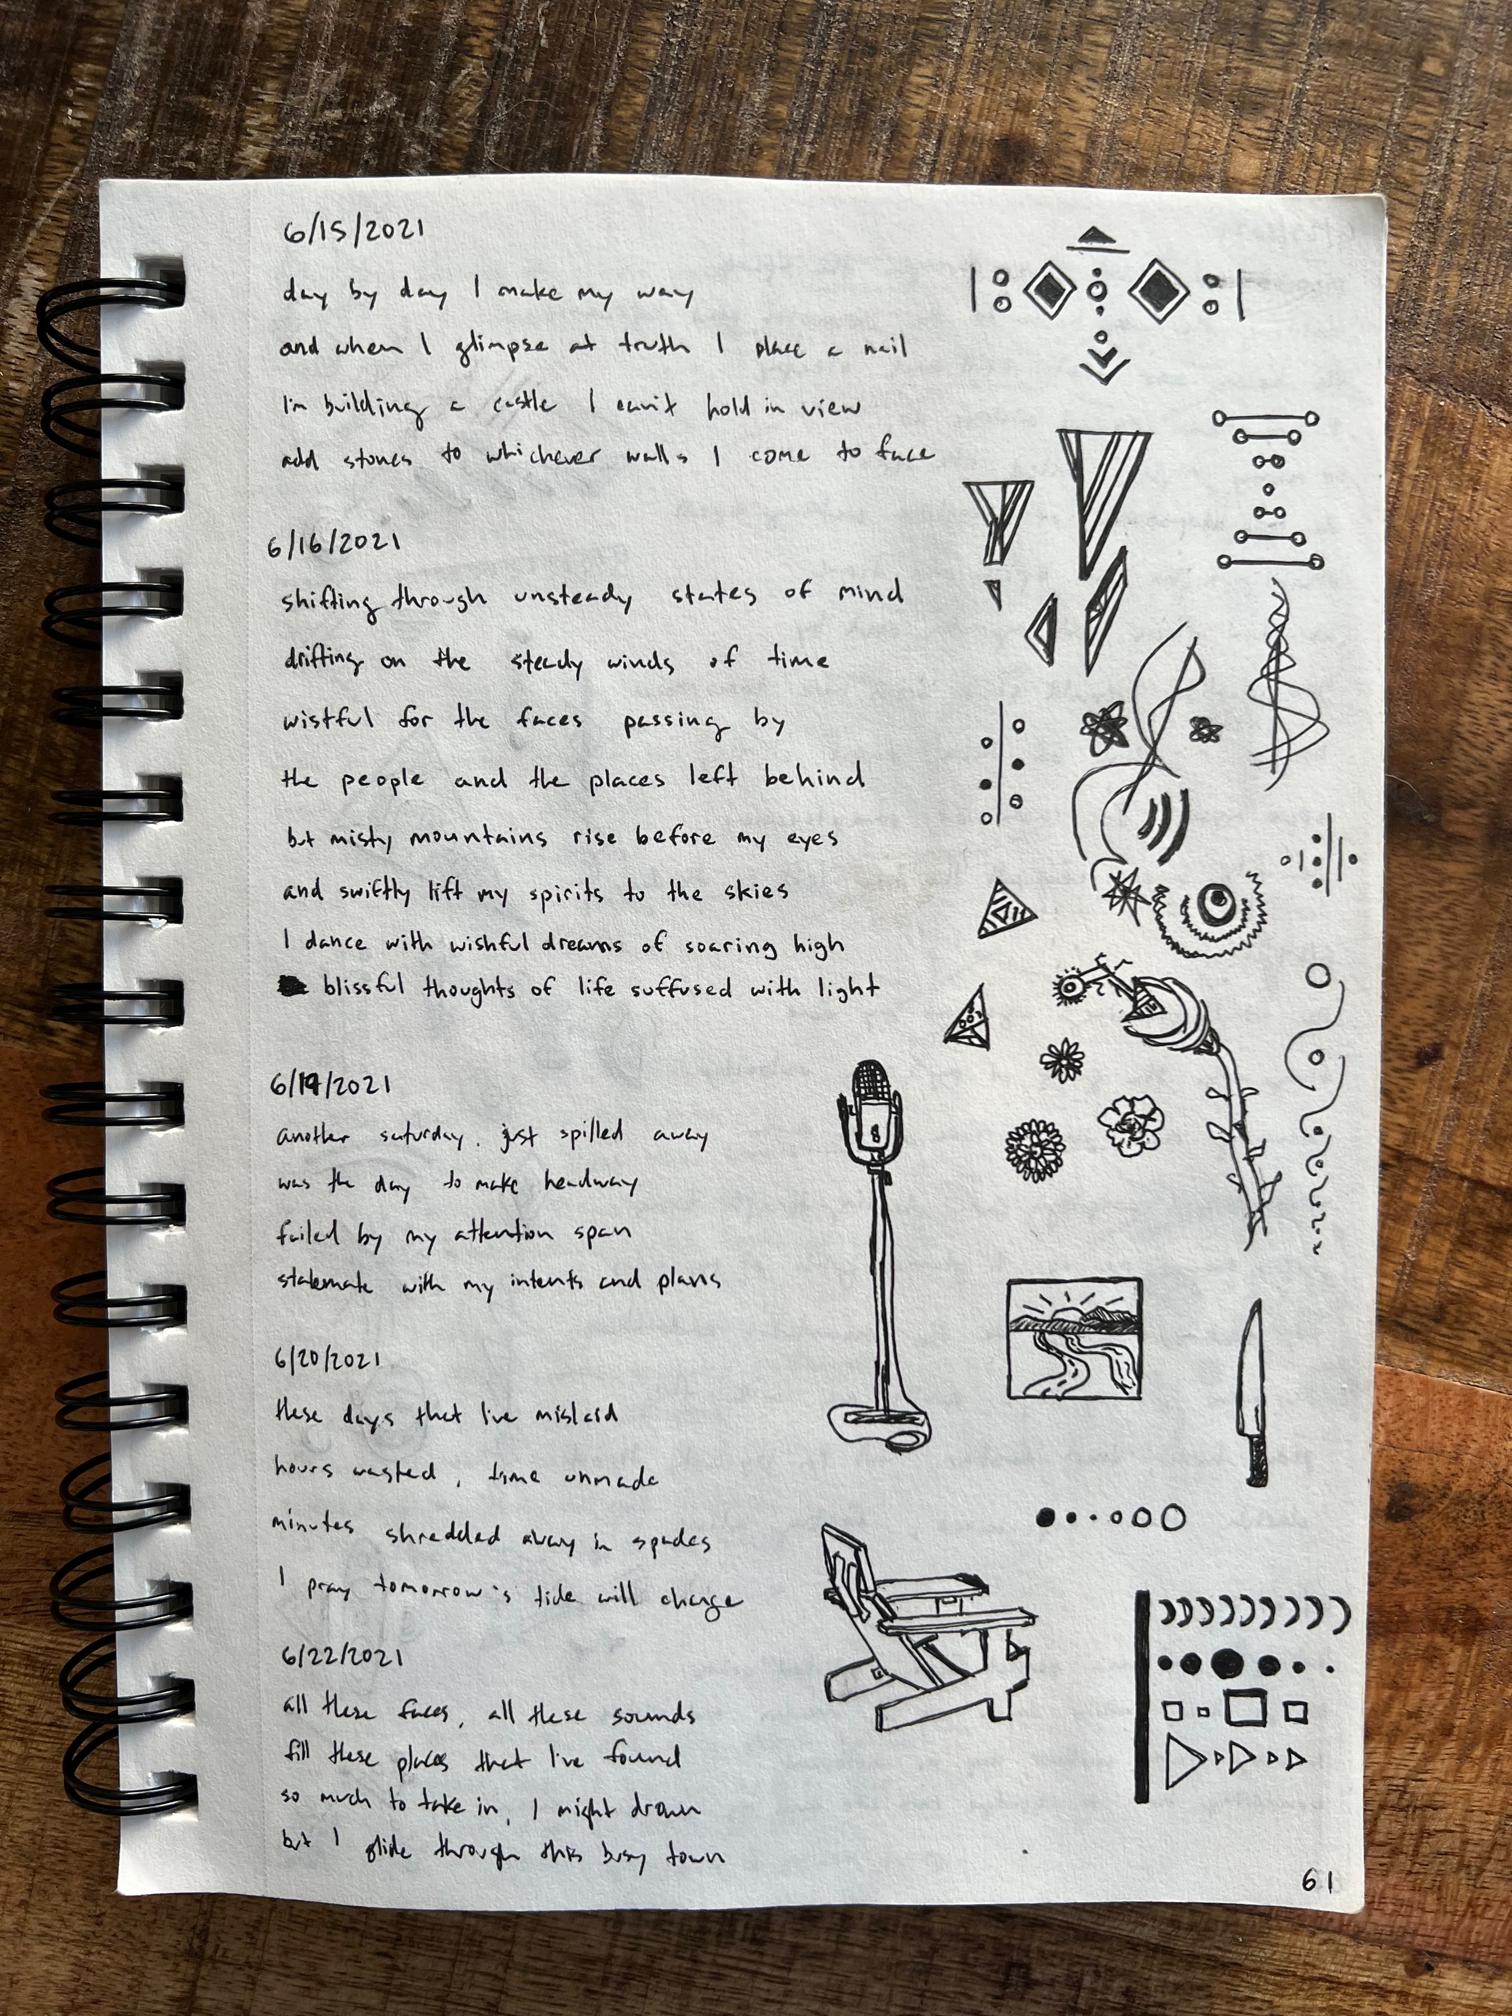 6/15/2021
day by day I make my way
and when I glimpse at truth I place a nail
I'm building a castle I can't hold in view
add stones to whichever walls I come to face
6/16/2021
shifting through unsteady states of mind
drifting on the steady winds of time
wistful for the faces passing by
the people and the places left behind
but misty mountains rise before my eyes
and swiftly lift my spirits to the skies
I dance with wishful dreams of soaring high
blissful thoughts of life suffused with light
6/19/2021
another saturday, just spilled away
was the day to make headway
failed by my attention span
stalemate with my intents and plans
6/20/2021
these days that I've mislaid
hours wasted, time unmade
minutes shredded away in spades
I pray tomorrow's tide will change
6/22/2021
all these faces, all these sounds
fill these places that I've found
so much to take in, I might drown
but I glide through this busy town
61